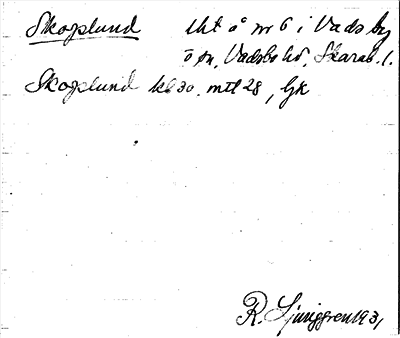 Skoglund lht å nr 6 i Vads by
o sn, Vadsbo hd, Skarab. l.
Skoglund kb 30, mtl 28, Gk
R. Ljunggren 1931